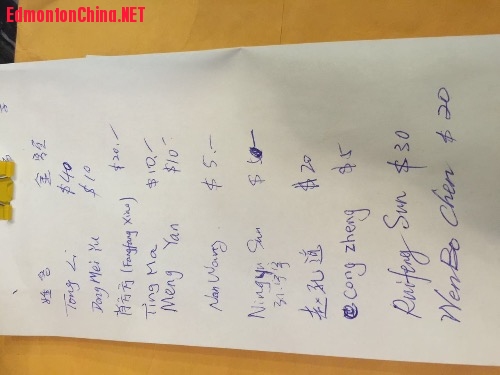 EdmontonChina.NET
姓名 金额
Tong Li $40
Dong Mei Yu $10
肖方方 (Fangfang Xiao) $20.—
Ting Ma $10.—
Meng Yan $10—
Nan Wang $5.—
Ningyu Sun
孔道 $20
Cong Zheng $5
Ruifeng Sun $30
WenBo Chen $20